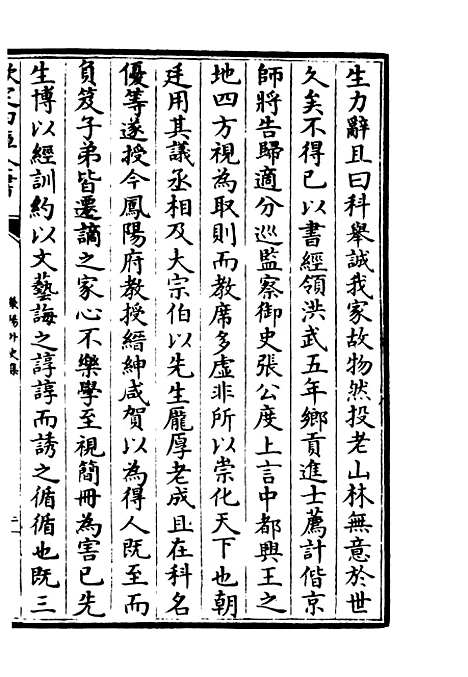 生力辭且曰科舉誠我家故物然投老山林無意於世
久矣不得已以書經領洪武五年鄉貢進士薦計偕京
師將告歸適分巡監察御史張公度上言中都興王之
地四方視為取則而教席多虛非所以崇化天下也朝
廷用其議丞相及大宗伯以先生龎厚老成且在科名
優等遂授今鳳陽府教授縉紳咸賀以為得人既至而
負笈子弟皆遷謫之家心不樂學至視簡冊為害已先
生博以經訓約以文藝誨之諄諄而誘之循循也既三
欽定四庫全書
外史集
二